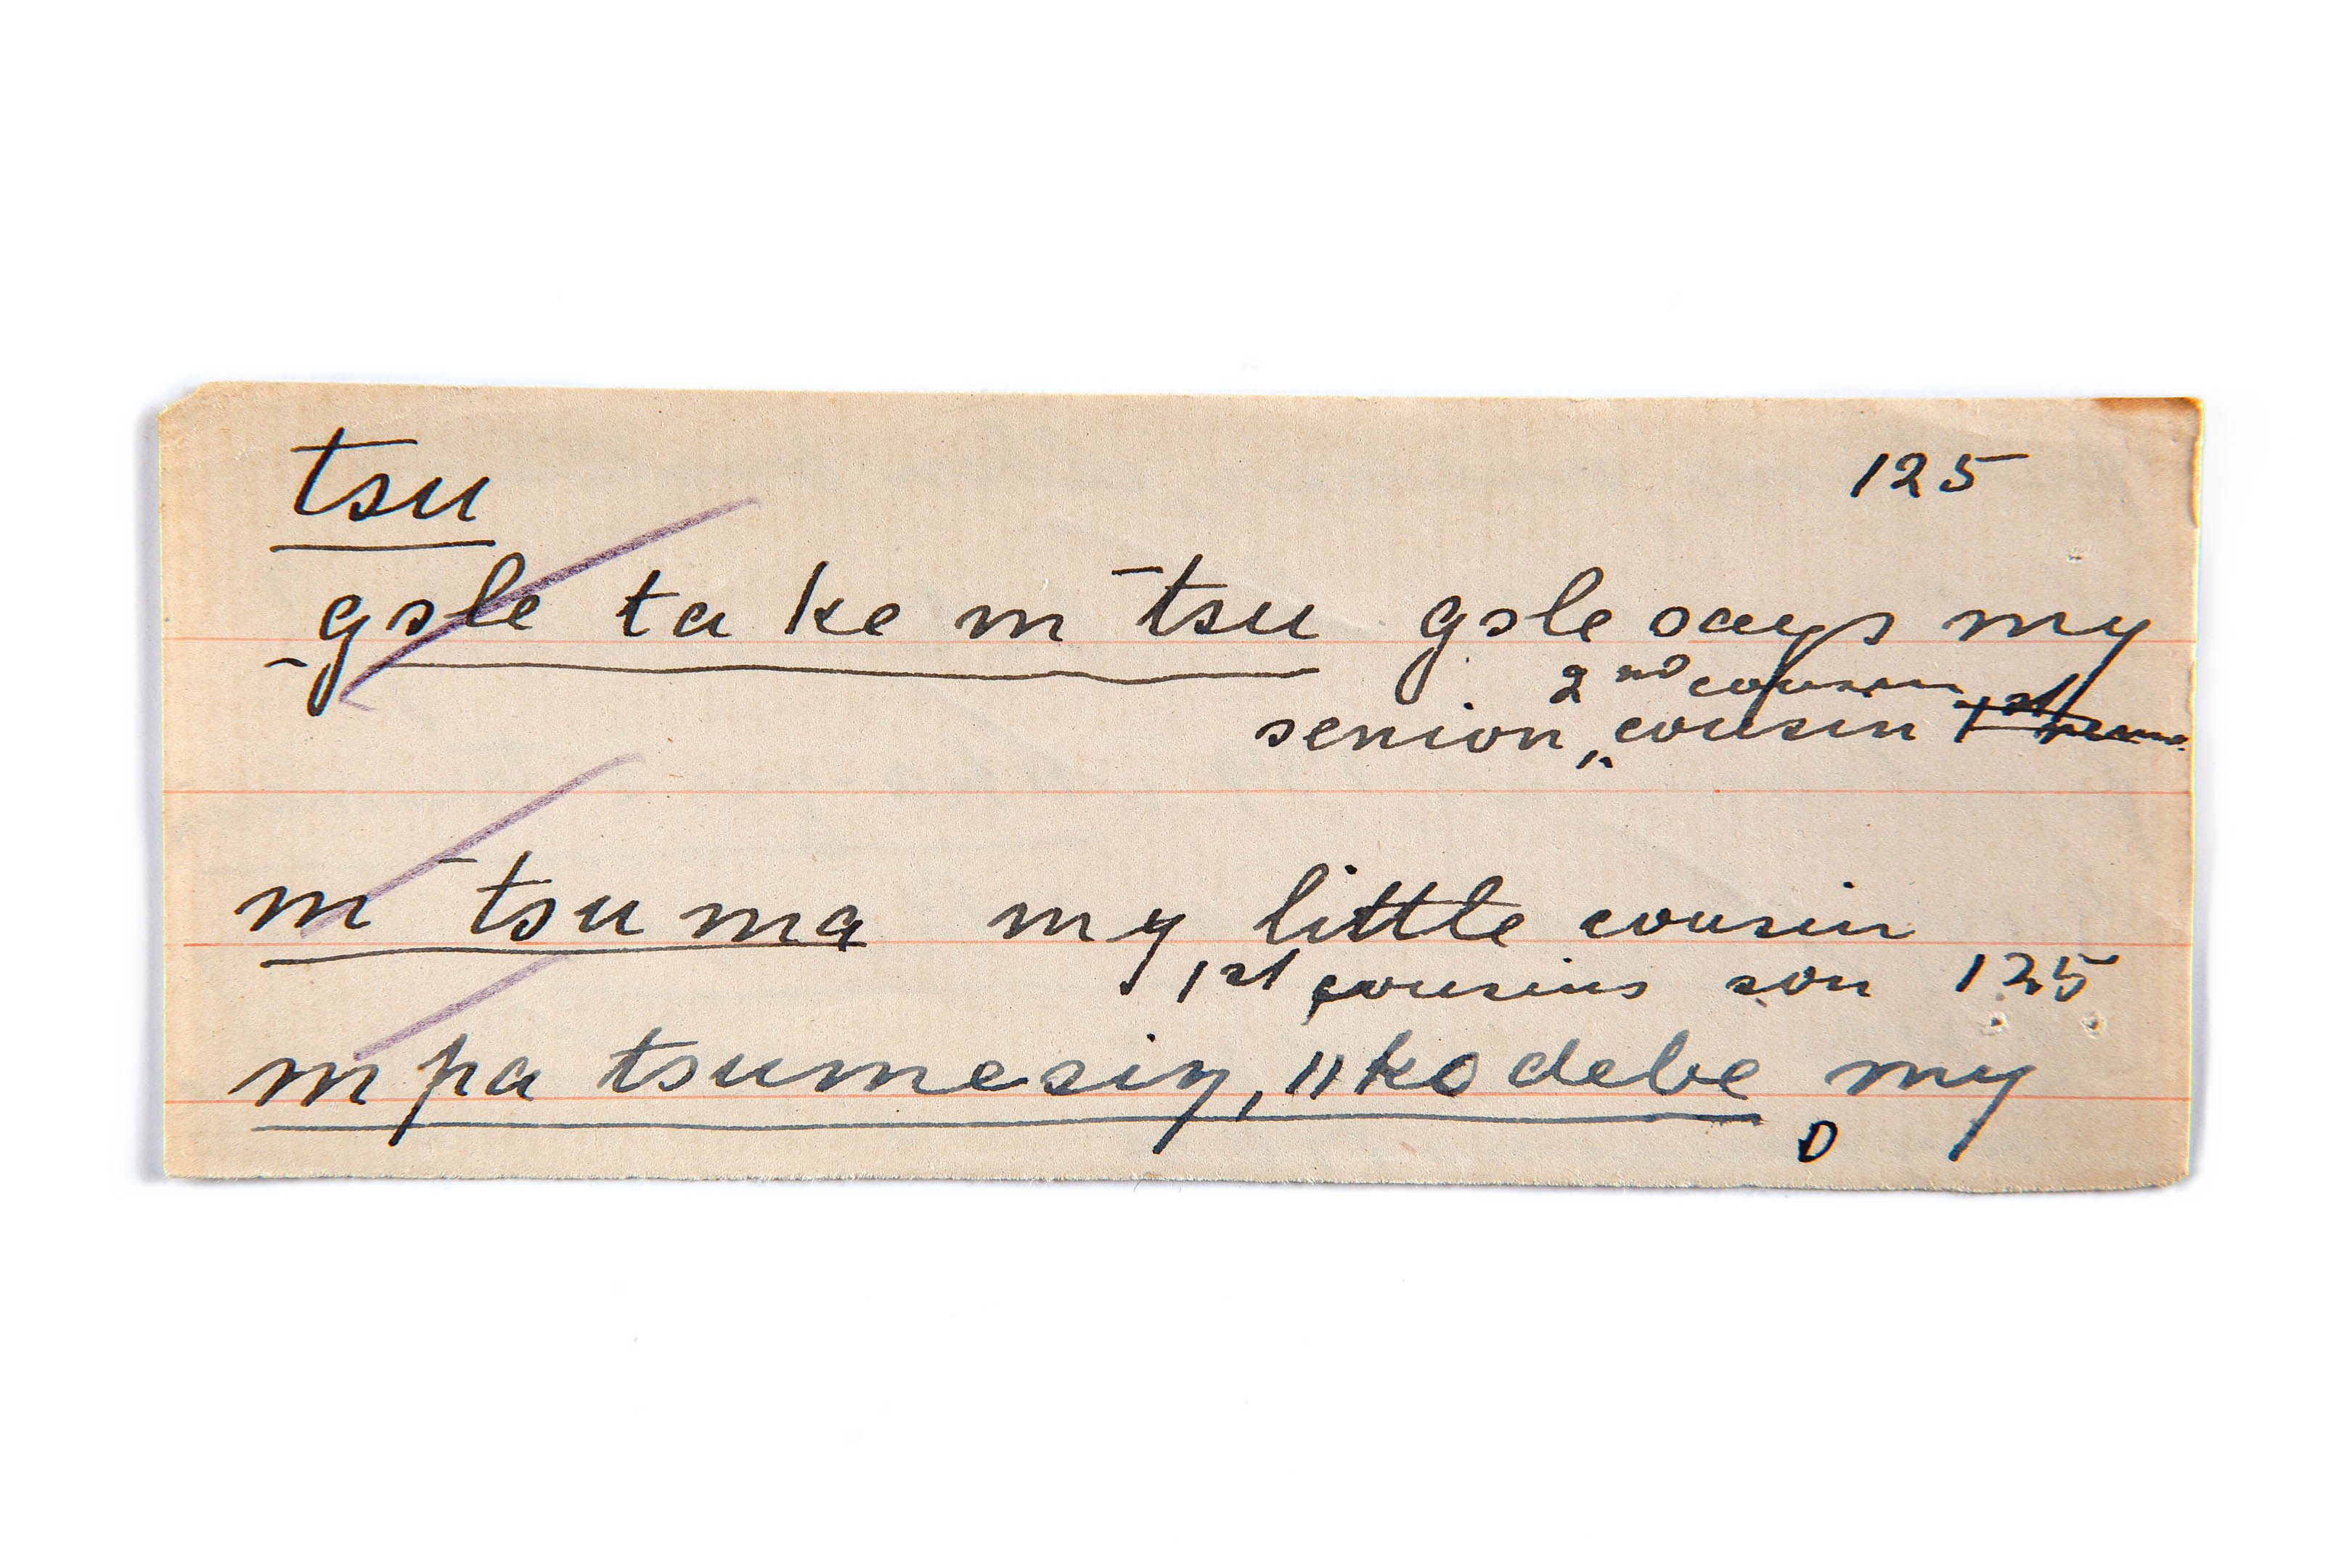 tsu 125
gsle ta ke m̄ tsu gsle says my
2nd cousin 1st
senior, cousin
m̄ tsu ma my little cousin
1st cousins son 125
m pa tsumesiŋ, "kodebe my
D